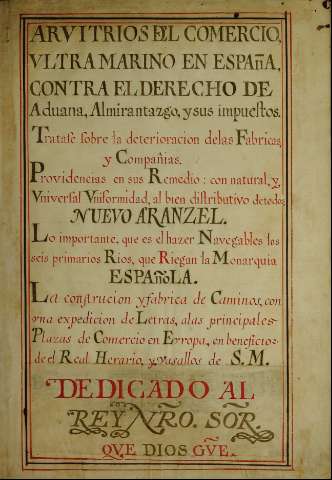 ARVITRIOS DEL COMERCIO,
VLTRAMARINO EN ESPAÑA,
CONTRA EL DERECHO DE
Aduana, Almirantazgo, y sus impuestos.
Tratase sobre la deterioracion de las Fabricas,
y Compañias.
Providencias en sus Remedio: con natural, y,
Vniversal Vniformidad, al bien distributivo de todos,
NUEVO ARANZEL.
Lo importante, que es el hazer Navegables los
seis primarios Rios, que Riegan la Monarquia
ESPAÑOLA.
La construcion y fabrica de Caminos, con
vna expedicion de Letras, a las principales
Plazas de Comercio en Evropa, en beneficio:
de el Real Herario, y vasallos de S. M.
DEDICADO AL
REY NRO. SOR.
QVE DIOS GVE.